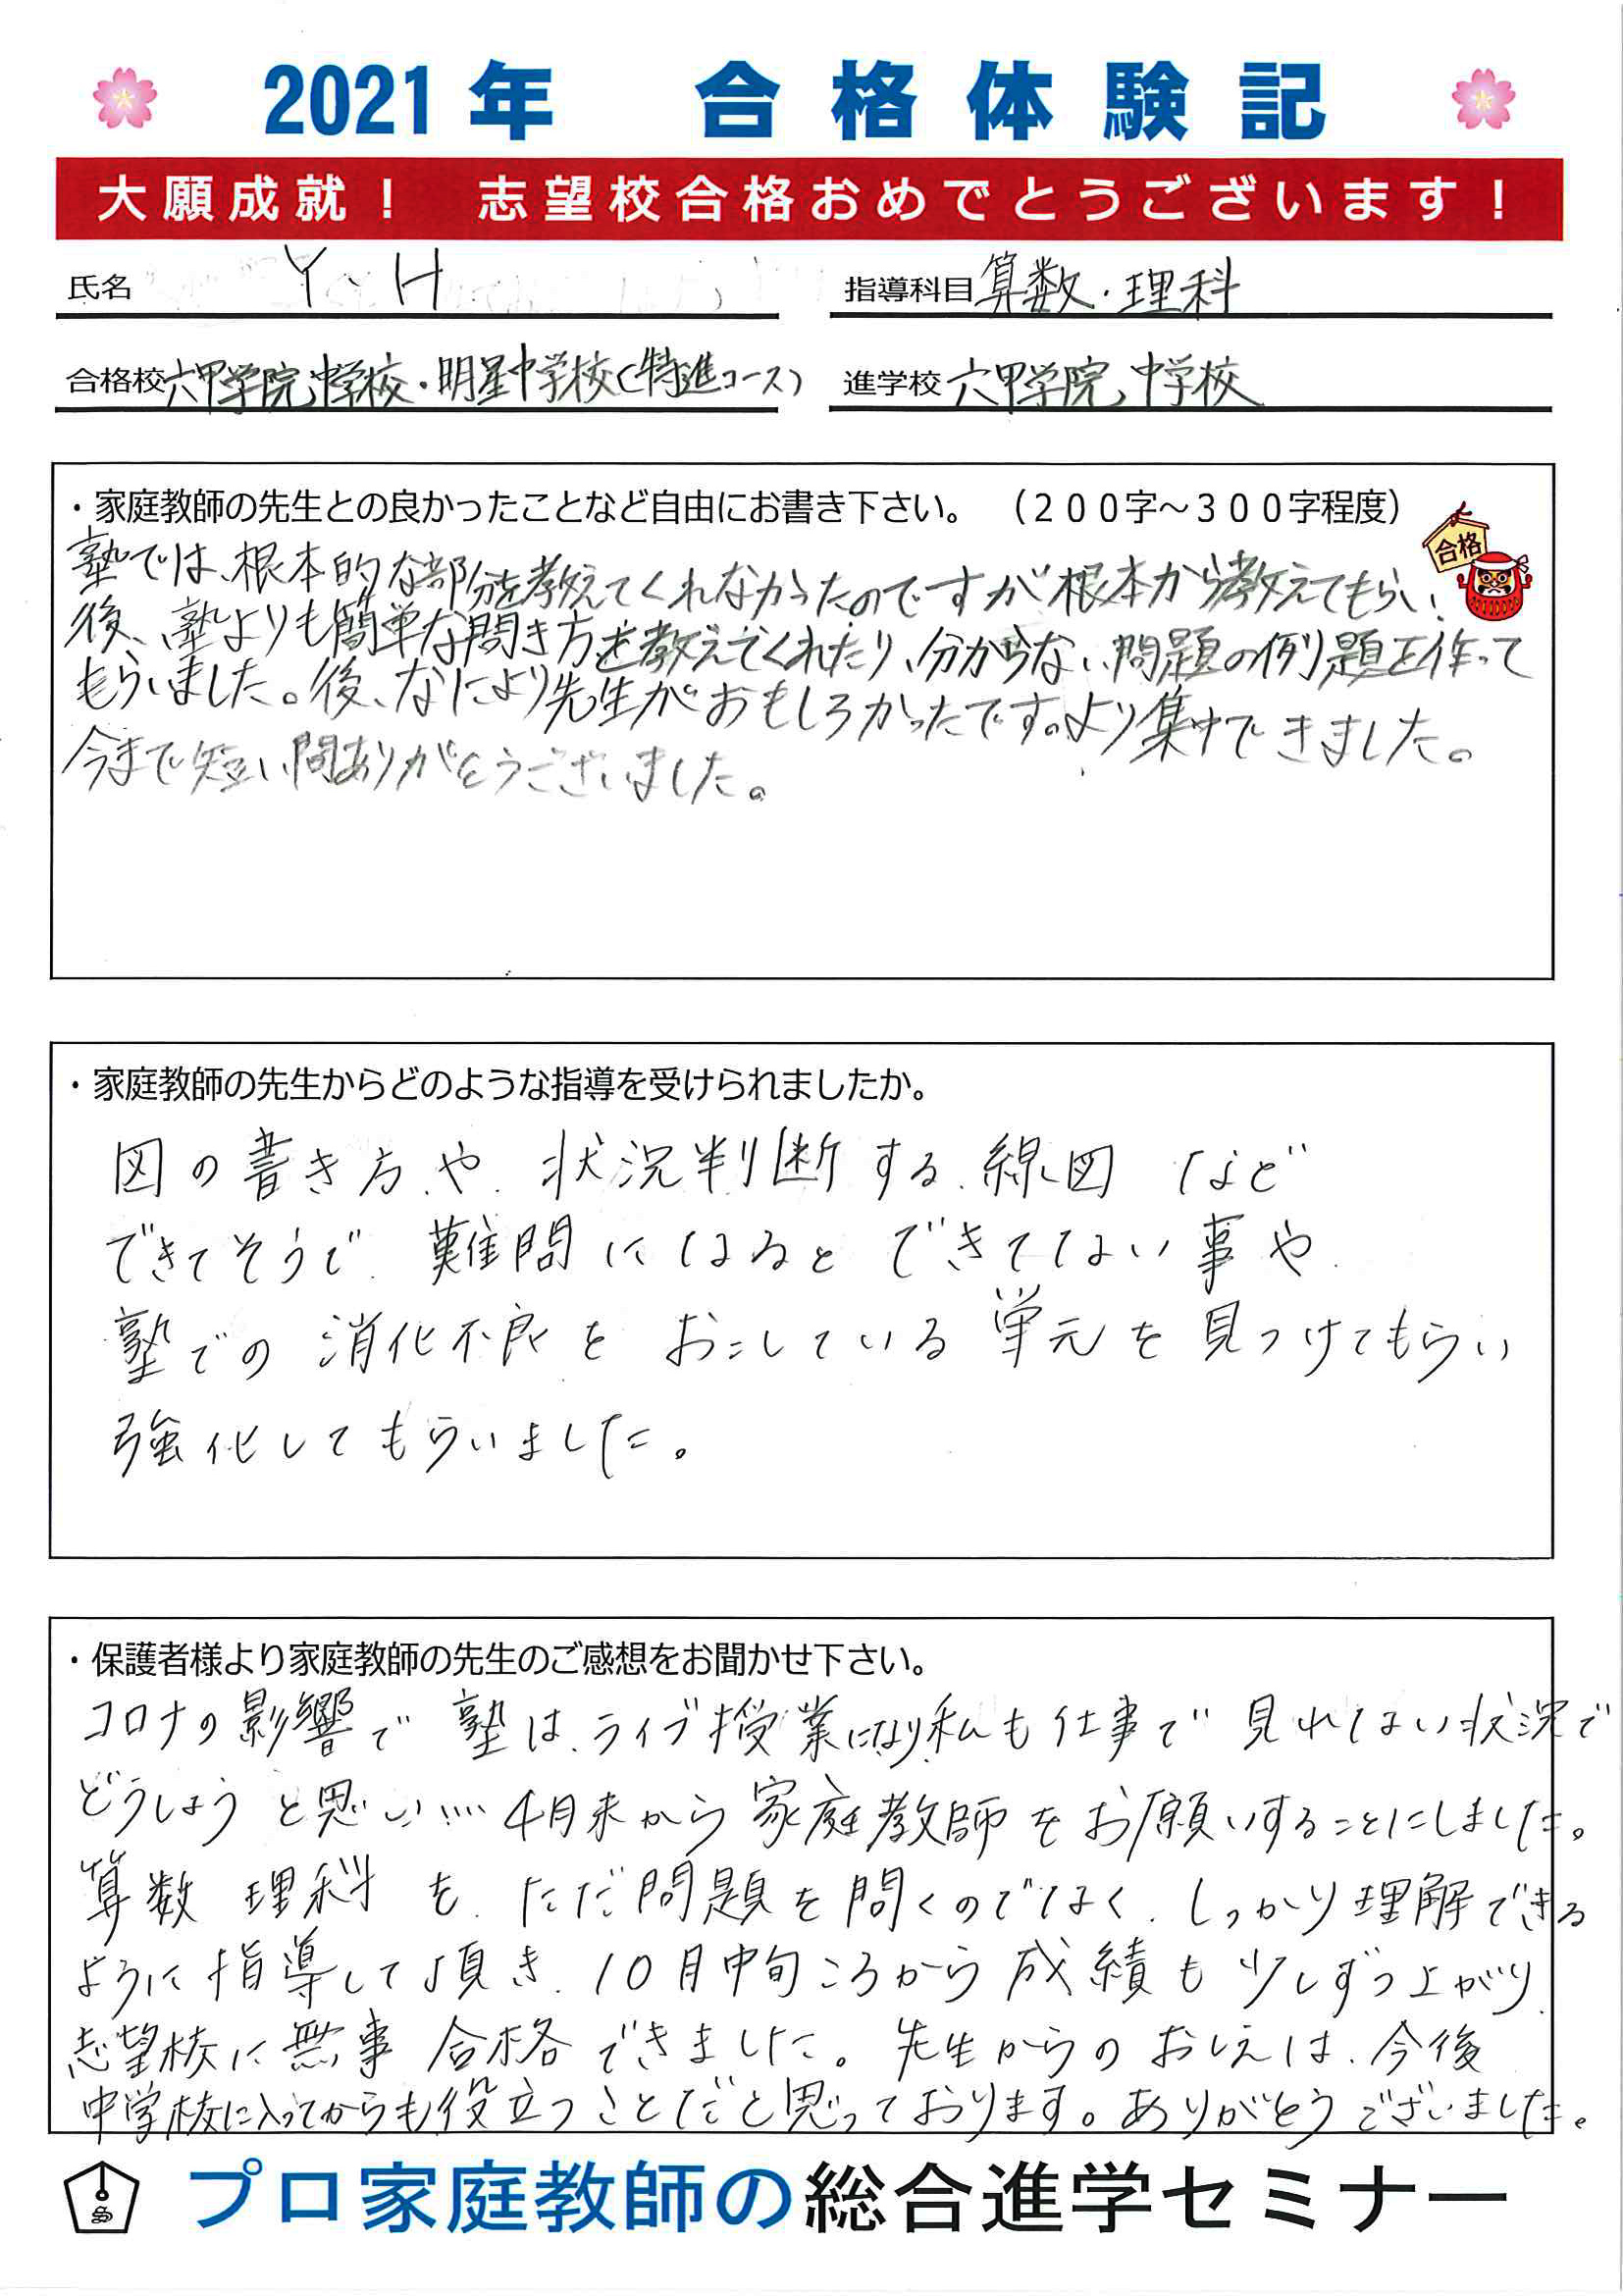 2021年 合格体験記
大願成就！ 志望校合格おめでとうございます！
氏名 Y.H
指導科目 算数・理科
合格校 六甲学院中学校・明星中学校(特進コース)
進学校 六甲学院中学校
・家庭教師の先生との良かったことなど自由にお書き下さい。 （２００字～３００字程度）
合格
塾では、根本的な部分を教えてくれなかったのですが根本から教えてもらい、
後、塾よりも簡単な開き方を教えてくれたり、分からない問題の例題を作って
もらいました。後、なにより先生がおもしろかったです。より集中できました。
今まで短い間ありがとうございました。
・家庭教師の先生からどのような指導を受けられましたか。
図の書き方や、状況判断する、線図 など
できてそうで、難問になるとできてない事や、
塾での消化不良をおこしている単元を見つけてもらい
強化してもらいました。
・保護者様より家庭教師の先生のご感想をお聞かせ下さい。
コロナの影響で塾は、ライブ授業になり私も仕事で見れない状況で
どうしようと思い…… 4月末から家庭教師をお願いすることにしました。
算数 理科 を、ただ問題を問くのでなく、しっかり理解できる
ように指導して頂き、10月中旬ころから成績も少しずつ上がり、
志望校に無事 合格できました。先生からのおしえは、今後
中学校に入ってからも役立つことだと思っております。ありがとうございました。
プロ家庭教師の総合進学セミナー